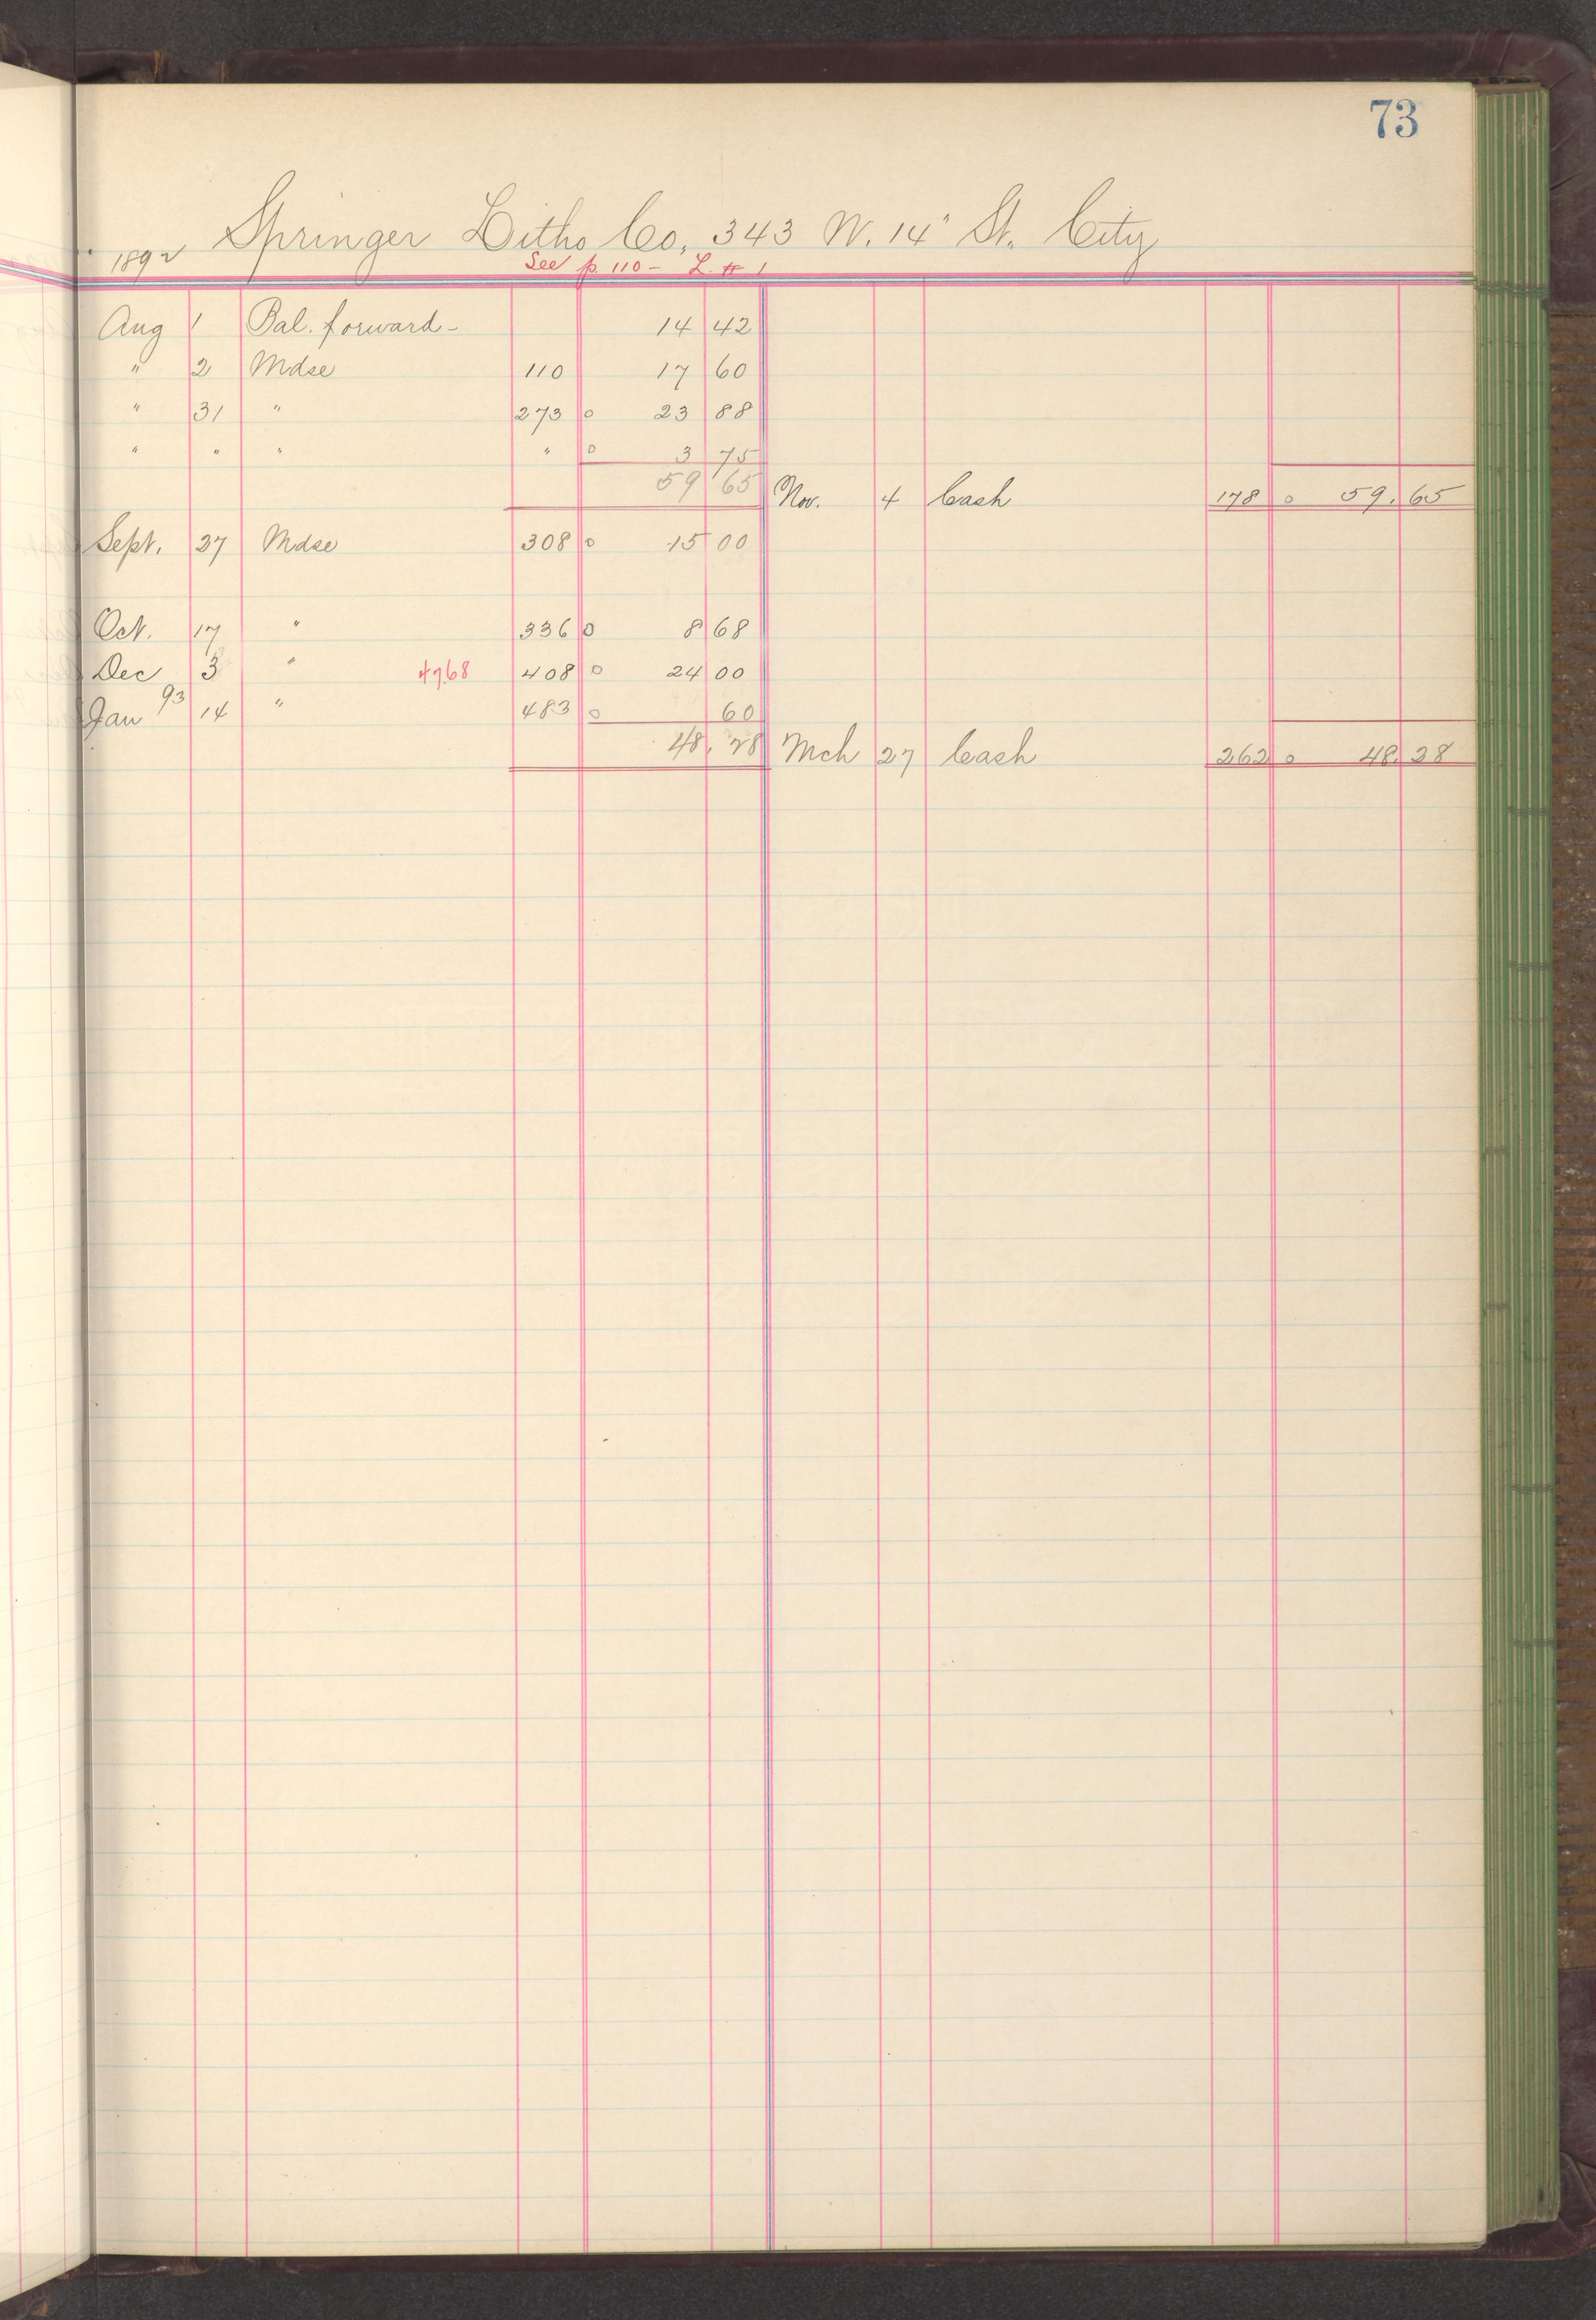 73
Springer Litho Co, 343 W. 14" St. City
1892
See p. 110 - L. # 1
Aug 1 Bal. forward - 14 42
" 2 Mdse 110 17 60
" 31 " 273 o 23 88
" " " " o 3 75
59 65 Nov. 4 Cash 178 o 59.65
Sept. 27 Mdse 308 o 15 00
Oct. 17 " 336 o 8 68
Dec 3 " 47.68 408 o 24 00
Jan 93 14 " 483 o 60
48.28 Mch 27 Cash 262 o 48.28